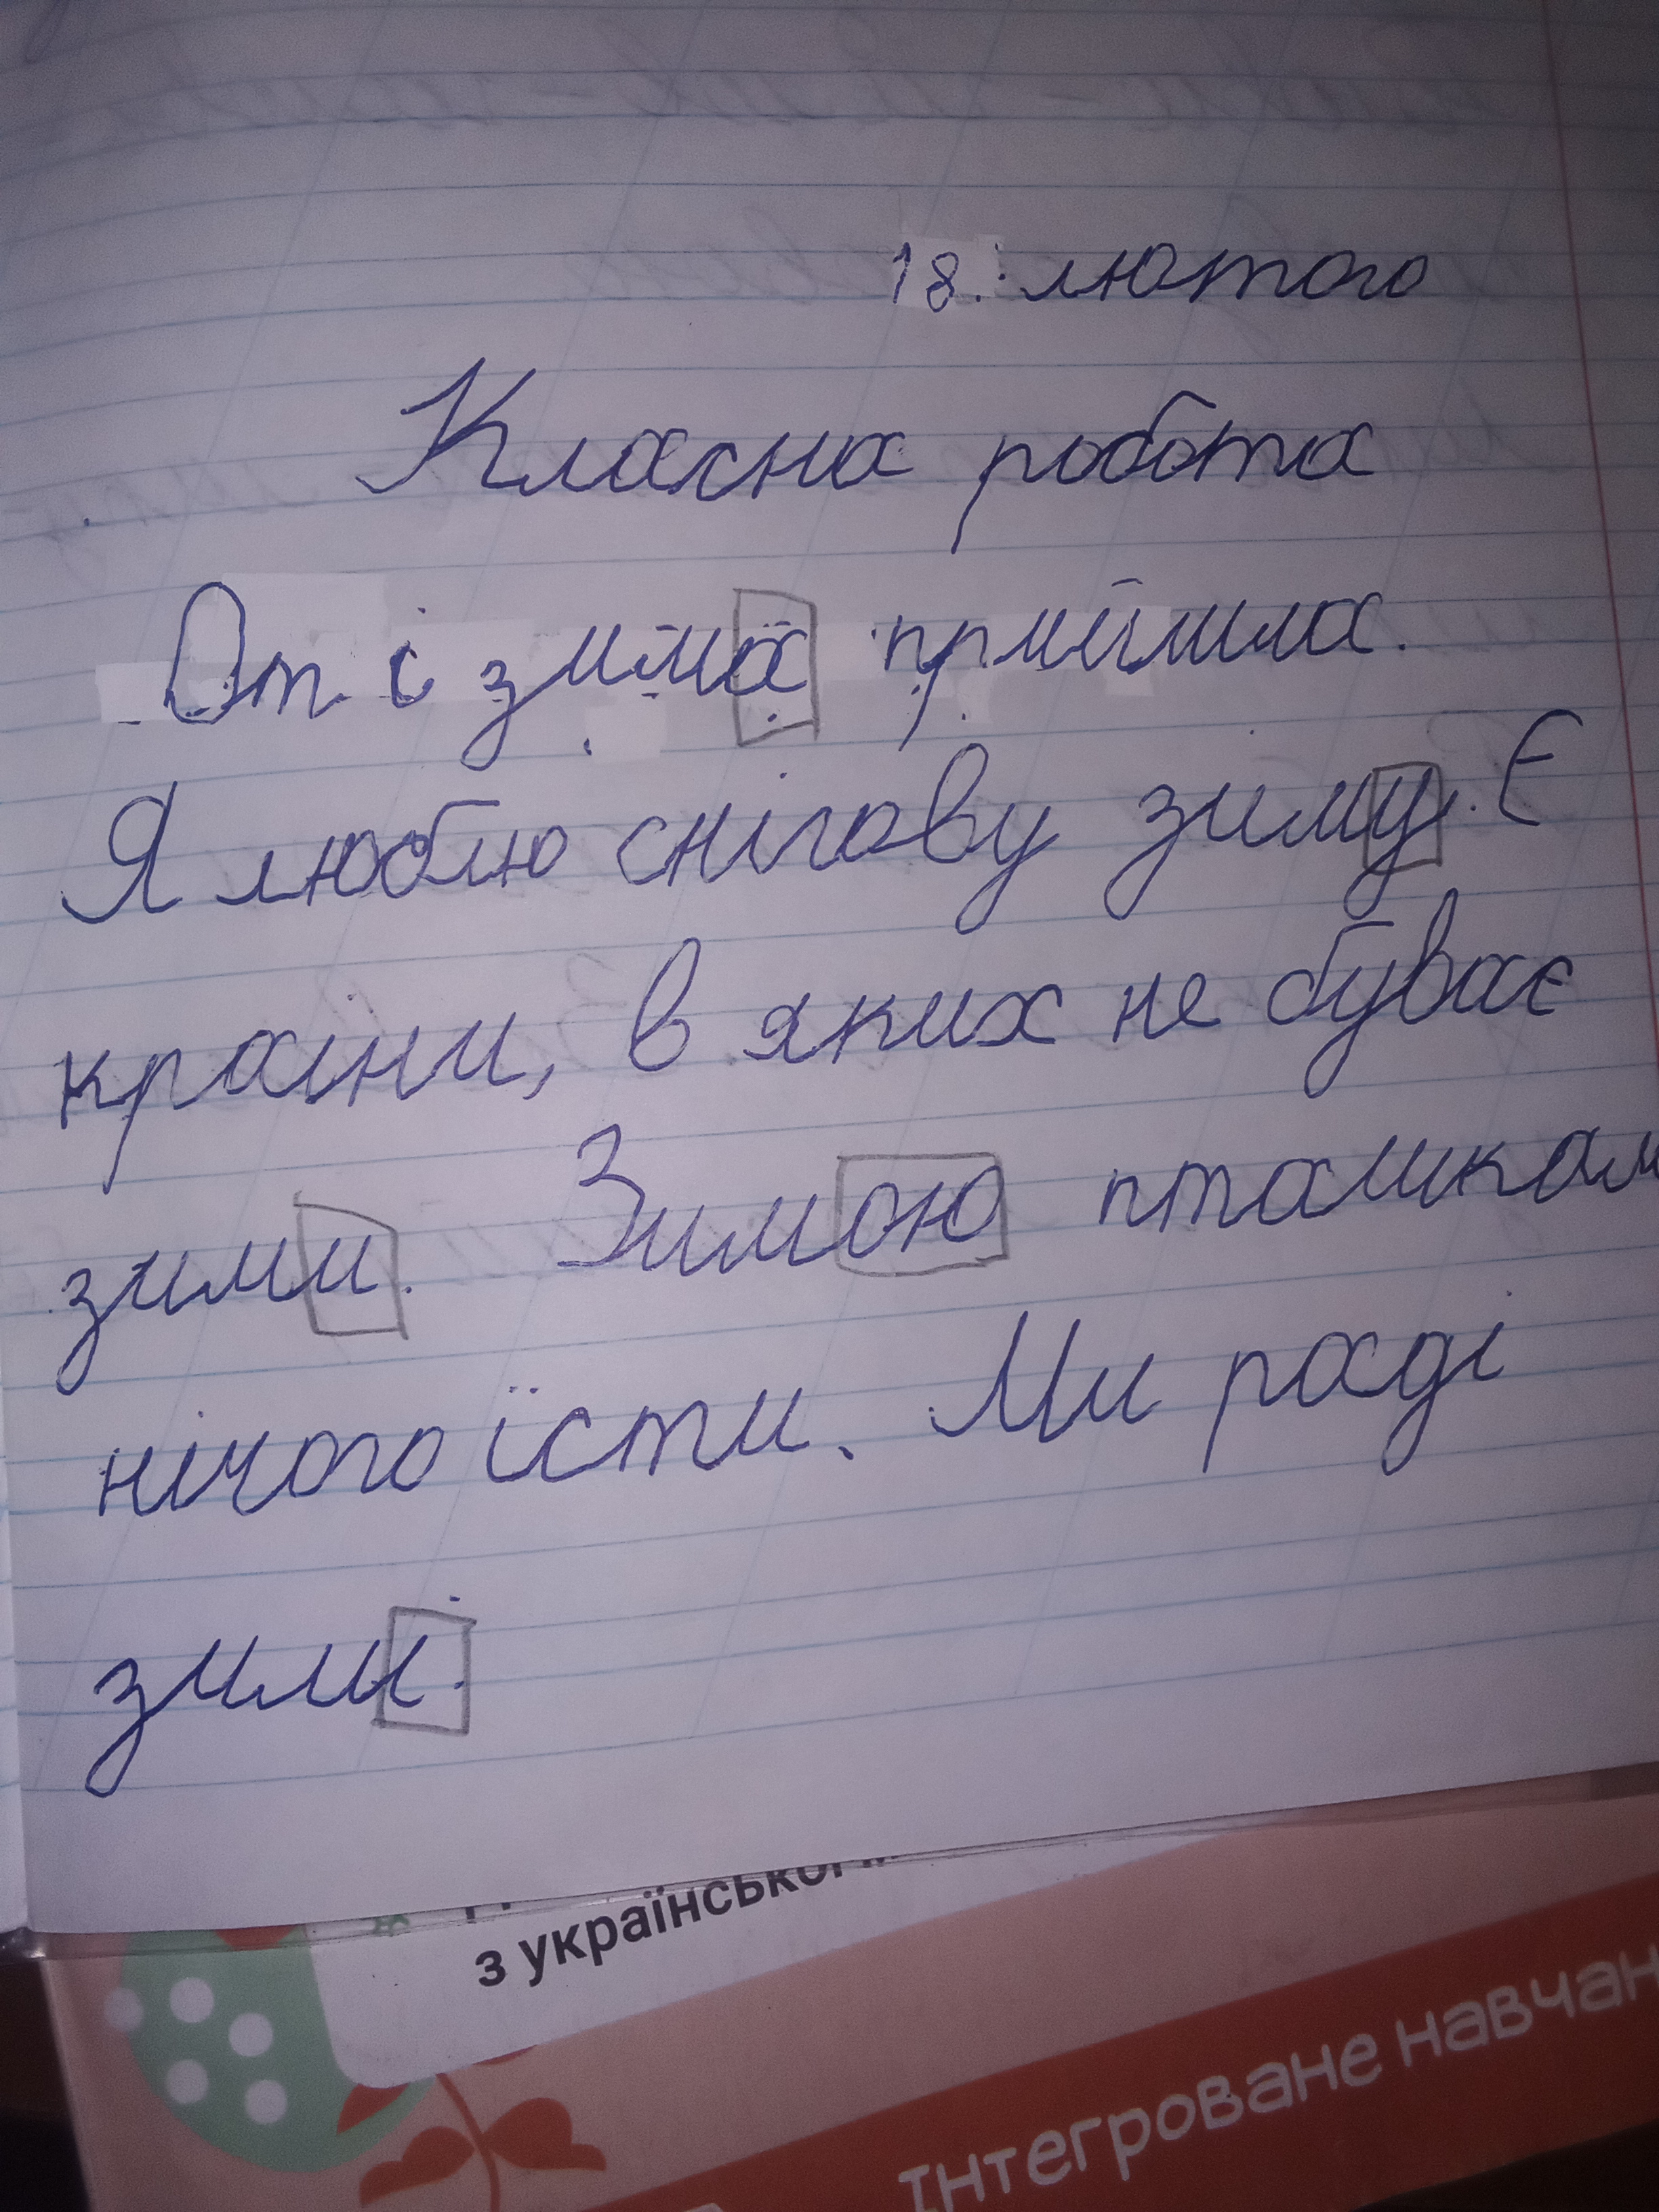 18. лютого
Класна робота
От і зима прийшла.
Я люблю снігову зиму. Є
країни, в яких не буває
зими. Зимою пташкам
нічого їсти. Ми раді
зимі.
з української
Інтегроване навчан